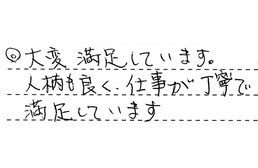 ◎大変満足しています。
人柄も良く、仕事が丁寧で
満足しています